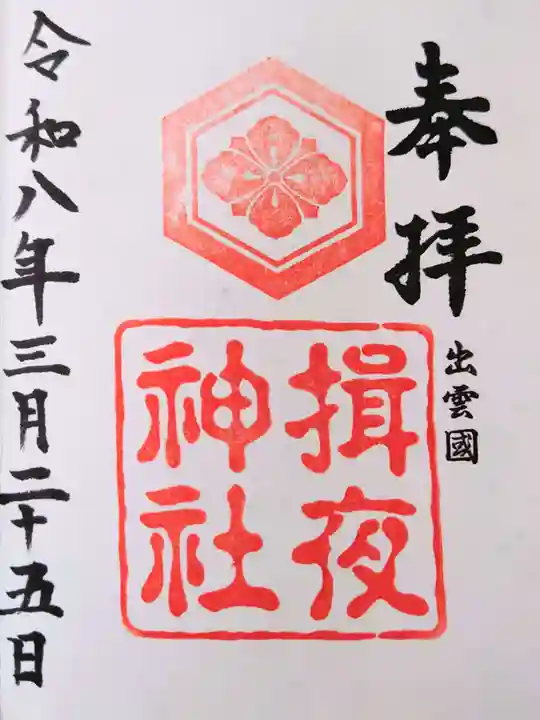 奉拝
出雲國
揖夜
神社
令和八年三月二十五日